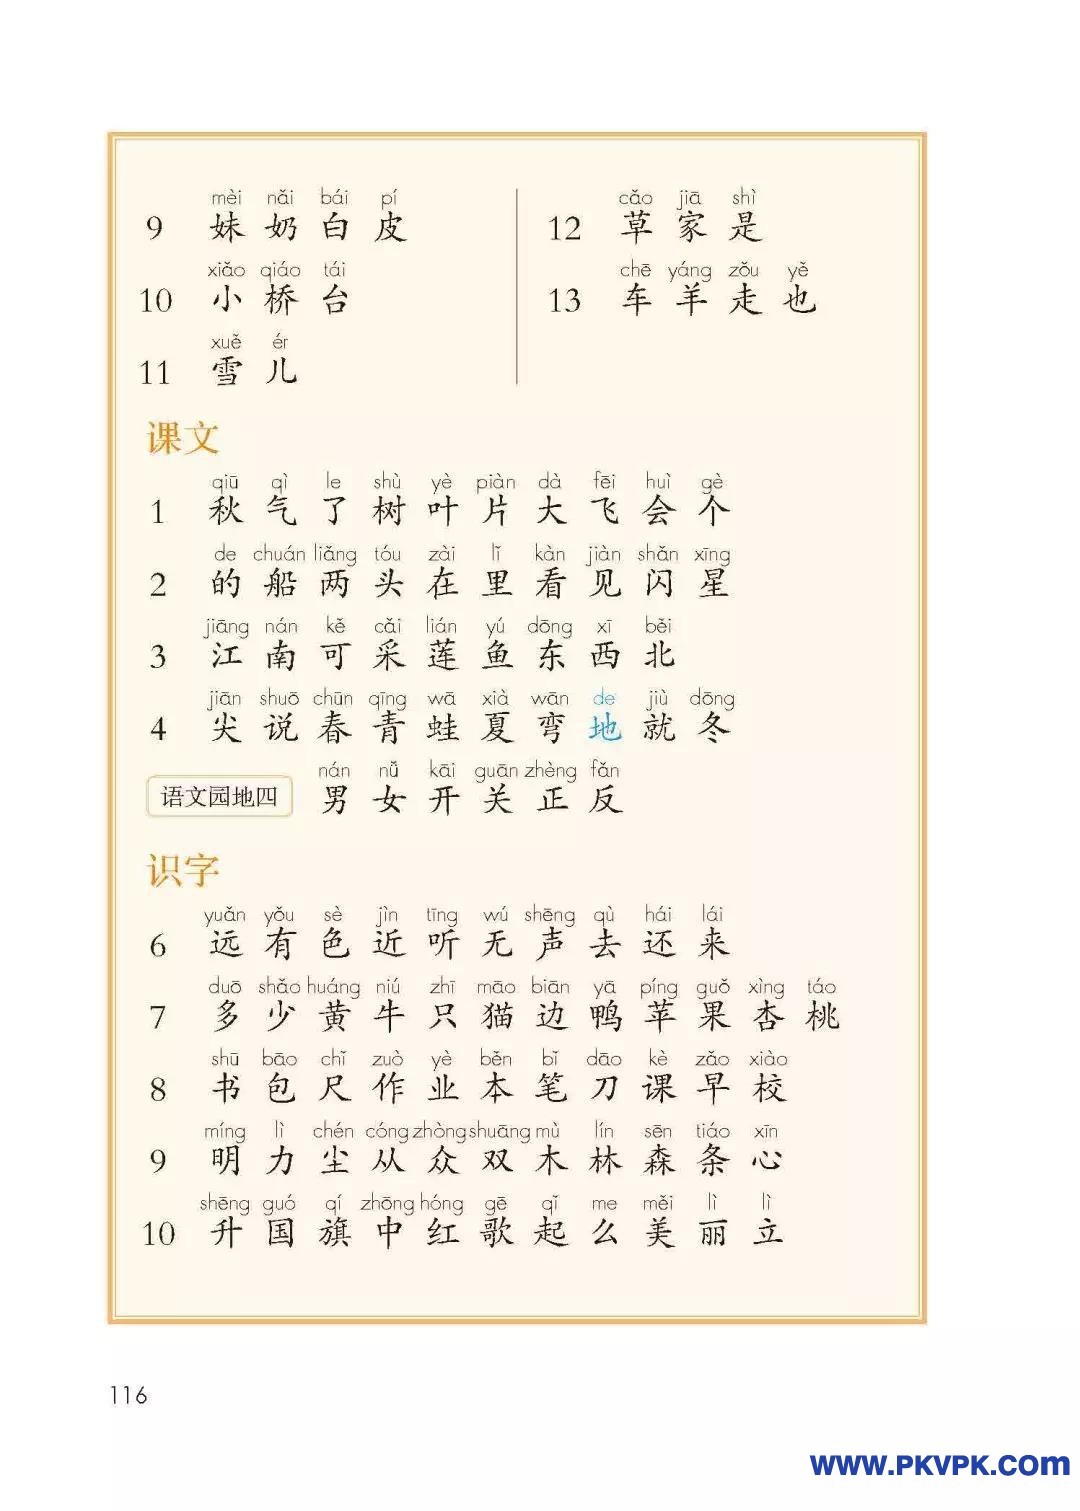 mèi nǎi bái pí
9 妹 奶 白 皮
xiǎo qiáo tái
10 小 桥 台
xuě ér
11 雪 儿
cǎo jiā shì
12 草 家 是
chē yáng zǒu yě
13 车 羊 走 也
课文
qiū qì le shù yè piàn dà fēi huì gè
1 秋 气 了 树 叶 片 大 飞 会 个
de chuán liǎng tóu zài lǐ kàn jiàn shǎn xīng
2 的 船 两 头 在 里 看 见 闪 星
jiāng nán kě cǎi lián yú dōng xī běi
3 江 南 可 采 莲 鱼 东 西 北
jiān shuō chūn qīng wā xià wān de jiù dōng
4 尖 说 春 青 蛙 夏 弯 地 就 冬
nán nǚ kāi guān zhèng fǎn
语文园地四 男 女 开 关 正 反
识字
yuǎn yǒu sè jìn tīng wú shēng qù hái lái
6 远 有 色 近 听 无 声 去 还 来
duō shǎo huáng niú zhī māo biān yā píng guǒ xìng táo
7 多 少 黄 牛 只 猫 边 鸭 苹 果 杏 桃
shū bāo chǐ zuò yè běn bǐ dāo kè zǎo xiào
8 书 包 尺 作 业 本 笔 刀 课 早 校
míng lì chén cóng zhòng shuāng mù lín sēn tiáo xīn
9 明 力 尘 从 众 双 木 林 森 条 心
shēng guó qí zhōng hóng gē qǐ me měi lì lì
10 升 国 旗 中 红 歌 起 么 美 丽 立
116
www.PKVPK.com